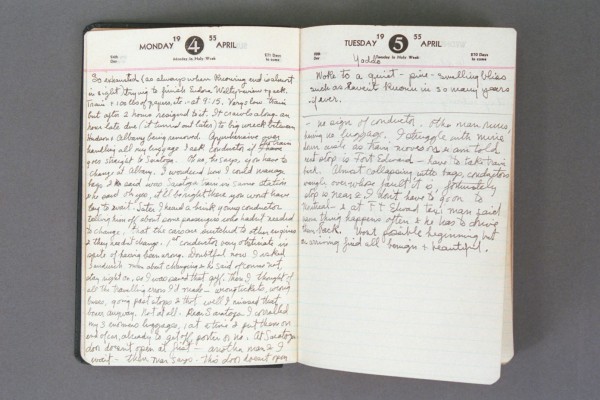 MONDAY 19 4 55 APRIL
94th Day
Monday in Holy Week
271 Days to come
So exhausted (as always when knowing end is almost
in sight) trying to finish Eudora Welty review + pack.
Train + loads of passengers - at 9:15. Very slow train
but after 2 hours resigned to it. It crawls along an
hour late due (it turned out later) to big wreck between
Hudson & Albany being removed. Apprehensive over
handling all my luggage I ask conductor if the train
goes straight to Saratoga. Oh no, he says, you have to
change at Albany. I wondered how I could manage
bags & he said was Saratoga train on same station
he said Oh yes, it'll be right there you won't have
long to wait. Later I heard a young conductor
telling him off about some passengers who hadn't needed
to change, that the cars are switched to other engines
& they needn't change. 1st conductor very obstinate in
spite of having been wrong. Doubtful now I asked
sandwich man about changing & he said of course not,
stay right on, so I was saved that OK. Then I thought of
all the travelling errors I'd made - wrong tickets, wrong
buses, going past stops & that well I missed that
one anyway. Not at all. Near Saratoga I collected
my 3 enormous luggages, 1 at a time & put them on
end of car, all ready to get off, porter or no. At Saratoga
door doesn't open at first - another man & I
wait - then man says - this door doesn't open
TUESDAY 19 5 55 APRIL
95th Day
Tuesday in Holy Week
270 Days to come
Yaddo
Woke to a quiet - pine - smelling bliss
such as haven't known in so many years
if ever.
- no sign of conductor. Other man runs,
having no luggage. I struggle with mine
down aisle as train moves on & am told
next stop is Fort Edward - have to take train
back. Almost collapsing with bags, conductors
wrangle over whose fault it is, fortunately
stop is near & I don't have to go on to
Montreal & at Ft. Edward taxi man said
same thing happens often & he has to bring
them back. Worst possible beginning but
on arriving find all benign & beautiful.